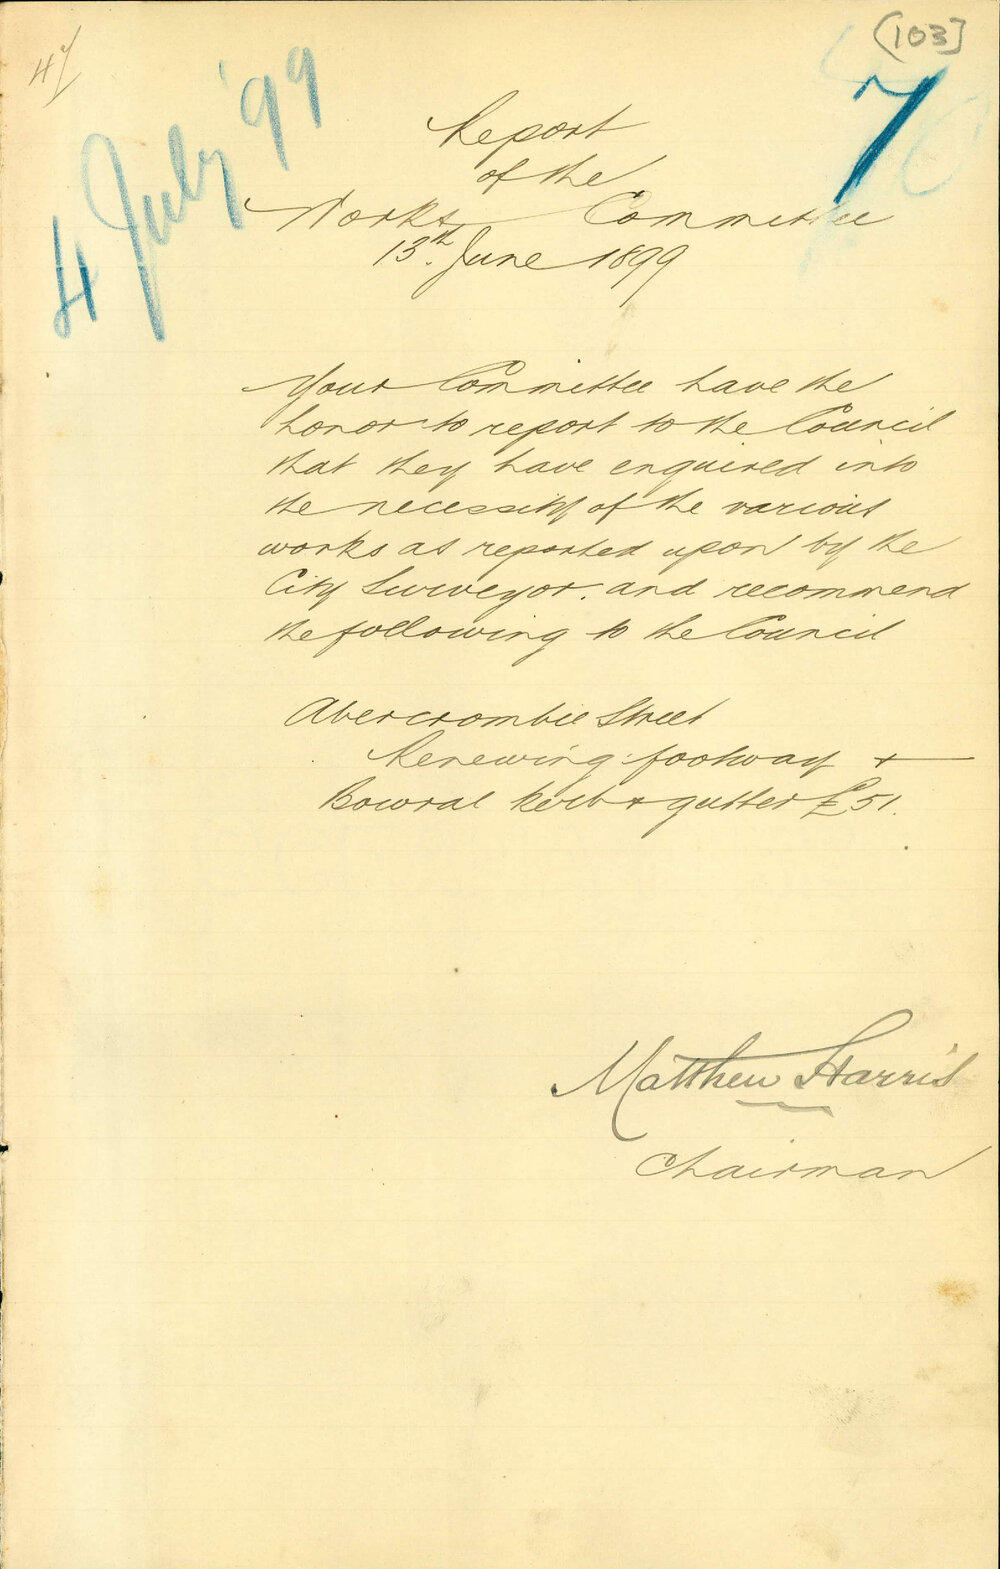 47
[103]
4 July '99
7
Report
of the
Works Committee
13th. June 1899
Your Committee have the
honor to report to the Council
that they have enquired into
the necessity of the various
works as reported upon by the
City Surveyor. and recommend
the following to the Council
Abercrombie Street
Renewing footway +
Bowral kerb + gutter £51.
Matthew Harris
Chairman